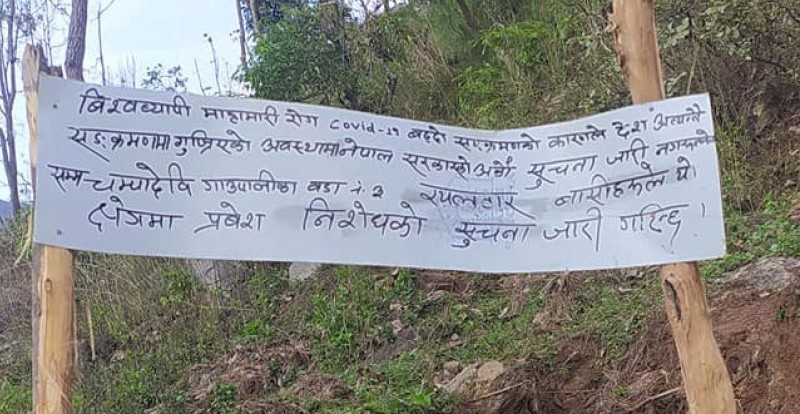 बिश्वव्यापी माहामारी रोग Covid-19 बढ्दो सङक्रमणको कारणले देश अत्यन्तै
सङःक्रमणमा गुज्रिएको अवस्थामा नेपाल सरकारको अर्को सुचना जारी नगरूञ्जेल
सम्म चम्पादेवि गाउपालीका वडा नं. 2 रपलटार बासीहरूले यो
क्षेत्रमा प्रबेश निशेधको सुचना जारी गरिन्छ।